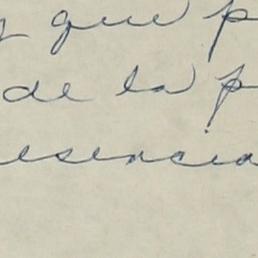 y que p
de la p
esencia